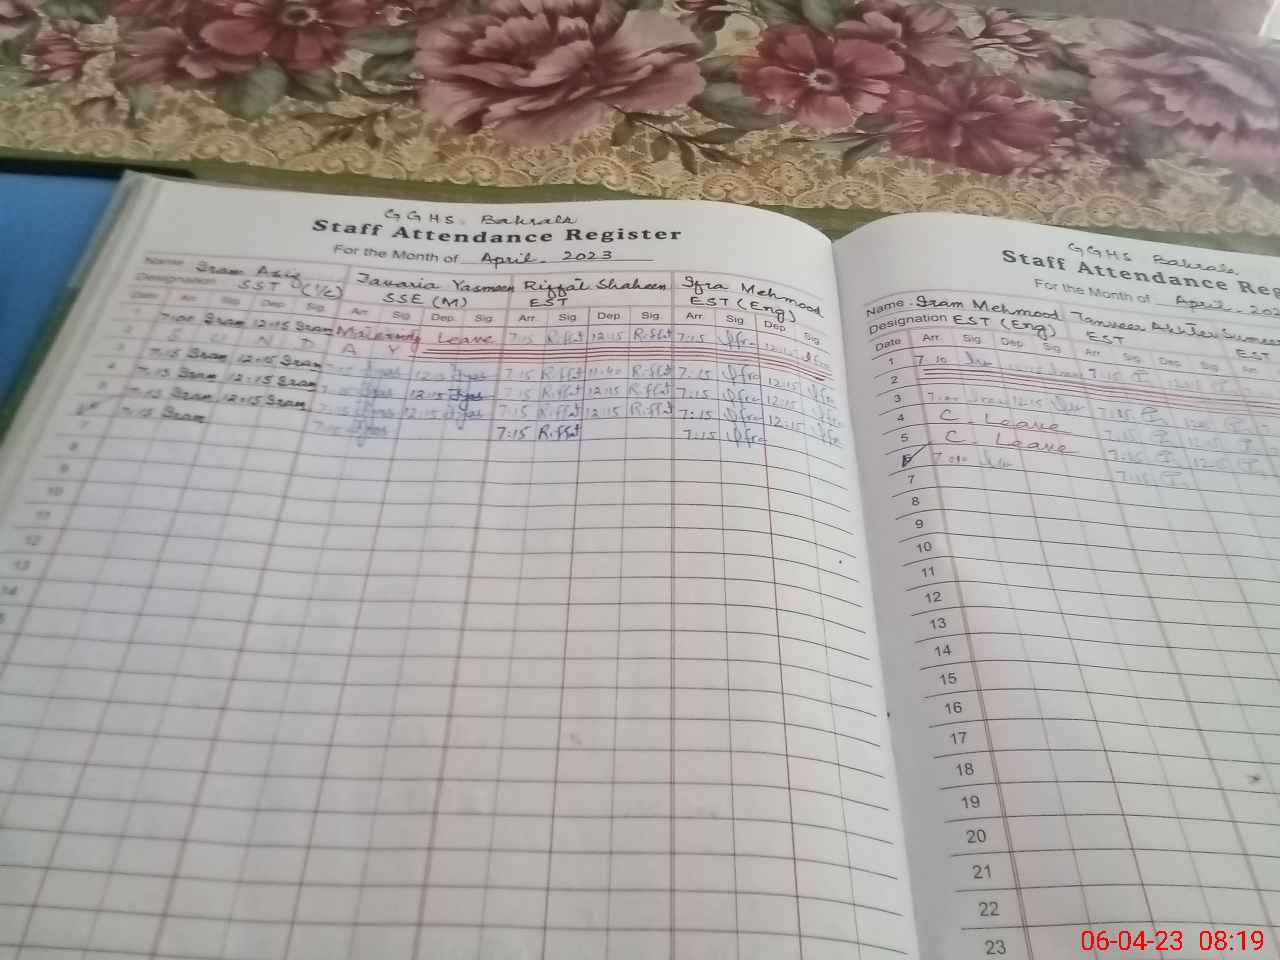 GGHS. Bahrala
Staff Attendance Register
For the Month of April - 2023
Name Iram Javaria Yasmeen Riffat Shaheen Iqra Mehmood
Designation SST SSE (M) EST EST (Eng)
Date Arr. Sig Dep. Sig. Arr. Sig Dep. Sig. Arr. Sig Dep. Sig. Arr. Sig Dep. Sig.
7:00 Iram 12:15 Iram Maternity Leave 7:15 Riffat 12:15 Riffat 7:15 Iqra 12:15 Iqra
U N D A Y
7:15 Iram 12:15 Iram 7:15 Riffat 11:40 Riffat 7:15 Iqra 12:15 Iqra
7:15 Iram 12:15 Iram 12:15 7:15 Riffat 12:15 Riffat 7:15 Iqra 12:15 Iqra
7:15 Iram 12:15 Iram 12:15 7:15 Riffat 12:15 Riffat 7:15 Iqra 12:15 Iqra
7:15 Iram 7:15 Riffat 7:15 Iqra
7
8
9
10
11
12
13
14
GGHS Bahrala
Staff Attendance Reg
For the Month of April - 202
Name Iram Mehmood Tanveer Akhter
Designation EST (Eng) EST EST
Date Arr. Sig Dep. Sig. Arr. Sig Dep. Sig. Arr.
1 7:10
2
3 7:00 12:15 7:15
4 C. Leave 7:15
5 C. Leave 7:15
6 7:00 7:15
7
8
9
10
11
12
13
14
15
16
17
18
19
20
21
22
23
06-04-23 08:19